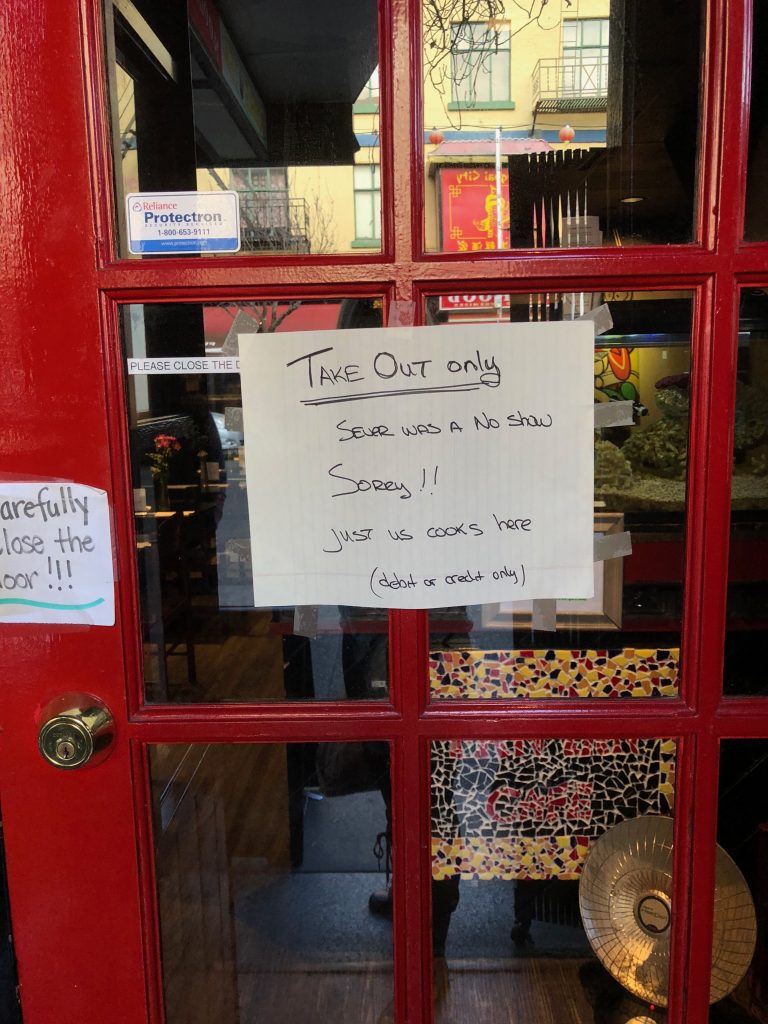 Reliance
Protectron
SECURITY SERVICES
1-800-653-9111
www.protectron.com
PLEASE CLOSE THE D
TAKE OUT only
SEVER WAS A NO SHOW
SORRY!!
JUST US COOKS HERE
(debit or credit only)
arefully
lose the
oor!!!